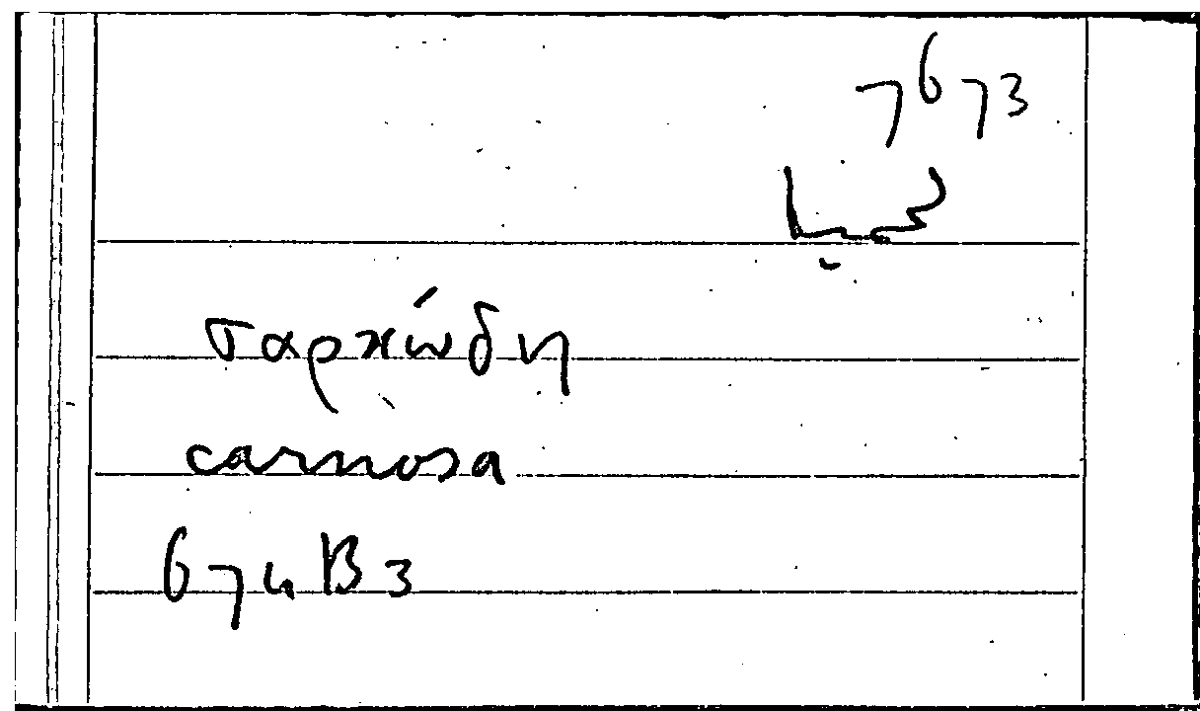 7673
σαρκώδη
carnosa
674B3